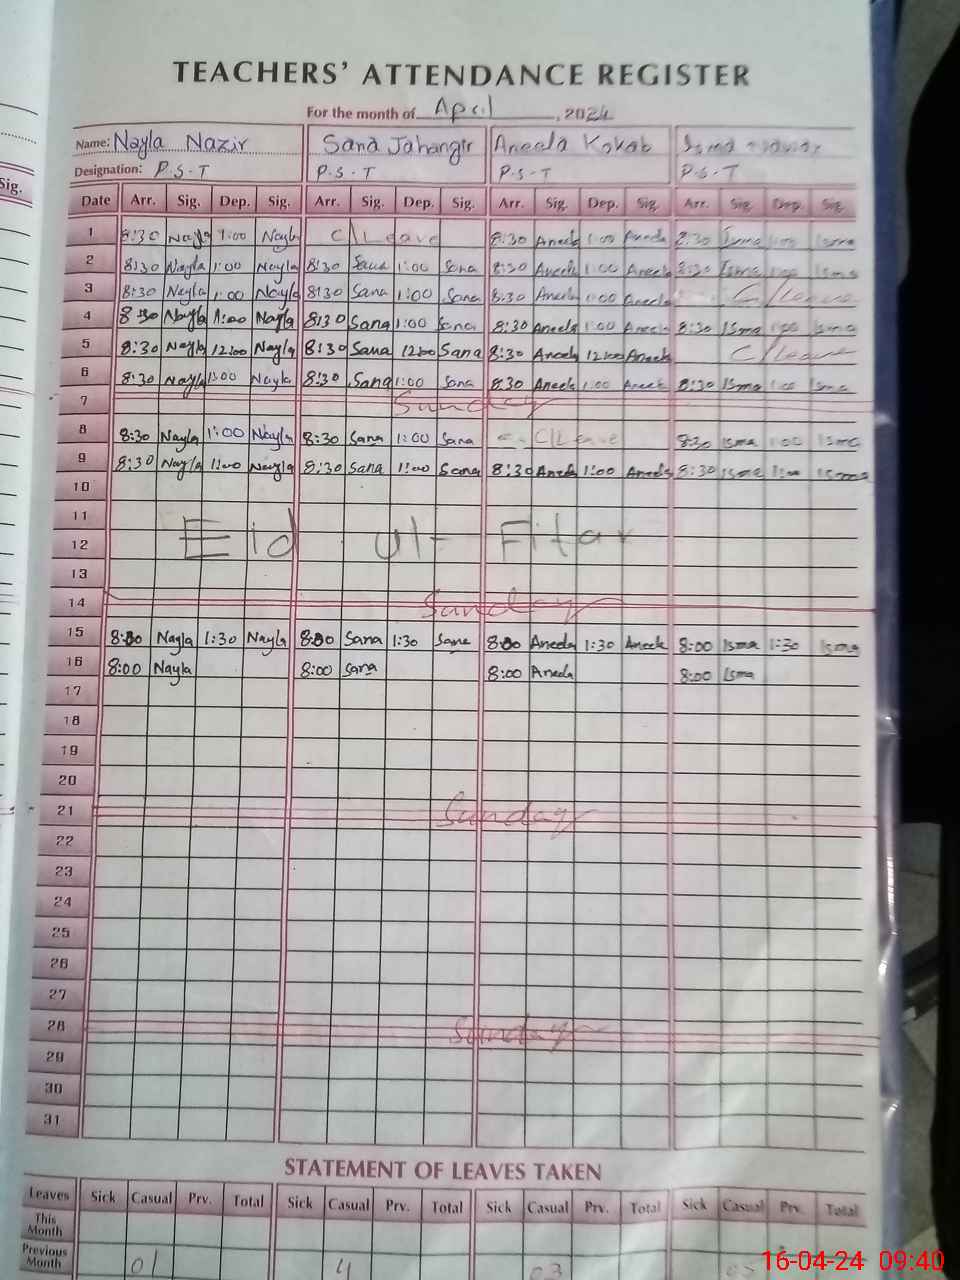 TEACHERS' ATTENDANCE REGISTER
For the month of April, 2024
Name: Nayla Nazir Sana Jahangir Aneela Kokab Isma
Designation: P.S.T P.S.T P.S.T P.S.T
Sig.
Date Arr. Sig. Dep. Sig. Arr. Sig. Dep. Sig. Arr. Sig. Dep. Sig. Arr. Sig. Dep. Sig.
1 8:30 Nayla 1:00 Nayla C/Leave 8:30 Aneela 1:00 Aneela 8:30 Isma 1:00 Isma
2 8:30 Nayla 1:00 Nayla 8:30 Sana 1:00 Sana 8:30 Aneela 1:00 Aneela 8:30 Isma 1:00 Isma
3 8:30 Nayla 1:00 Nayla 8:30 Sana 1:00 Sana 8:30 Aneela 1:00 Aneela C/Leave
4 8:30 Nayla 1:00 Nayla 8:30 Sana 1:00 Sana 8:30 Aneela 1:00 Aneela 8:30 Isma 1:00 Isma
5 8:30 Nayla 12:00 Nayla 8:30 Sana 12:00 Sana 8:30 Aneela 12:00 Aneela C/Leave
6 8:30 Nayla 1:00 Nayla 8:30 Sana 1:00 Sana 8:30 Aneela 1:00 Aneela 8:30 Isma 1:00 Isma
7 Sunday
8 8:30 Nayla 1:00 Nayla 8:30 Sana 1:00 Sana C/Leave 8:30 Isma 1:00 Isma
9 8:30 Nayla 1:00 Nayla 8:30 Sana 1:00 Sana 8:30 Aneela 1:00 Aneela 8:30 Isma 1:00 Isma
10
11
12 Eid ul- Fitar
13
14 Sunday
15 8:00 Nayla 1:30 Nayla 8:00 Sana 1:30 Sana 8:00 Aneela 1:30 Aneela 8:00 Isma 1:30 Isma
16 8:00 Nayla 8:00 Sana 8:00 Aneela 8:00 Isma
17
18
19
20
21 Sunday
22
23
24
25
26
27
28 Sunday
29
30
31
STATEMENT OF LEAVES TAKEN
Leaves Sick Casual Prv. Total Sick Casual Prv. Total Sick Casual Prv. Total Sick Casual Prv. Total
This Month
Previous Month 01 4 03
16-04-24 09:40